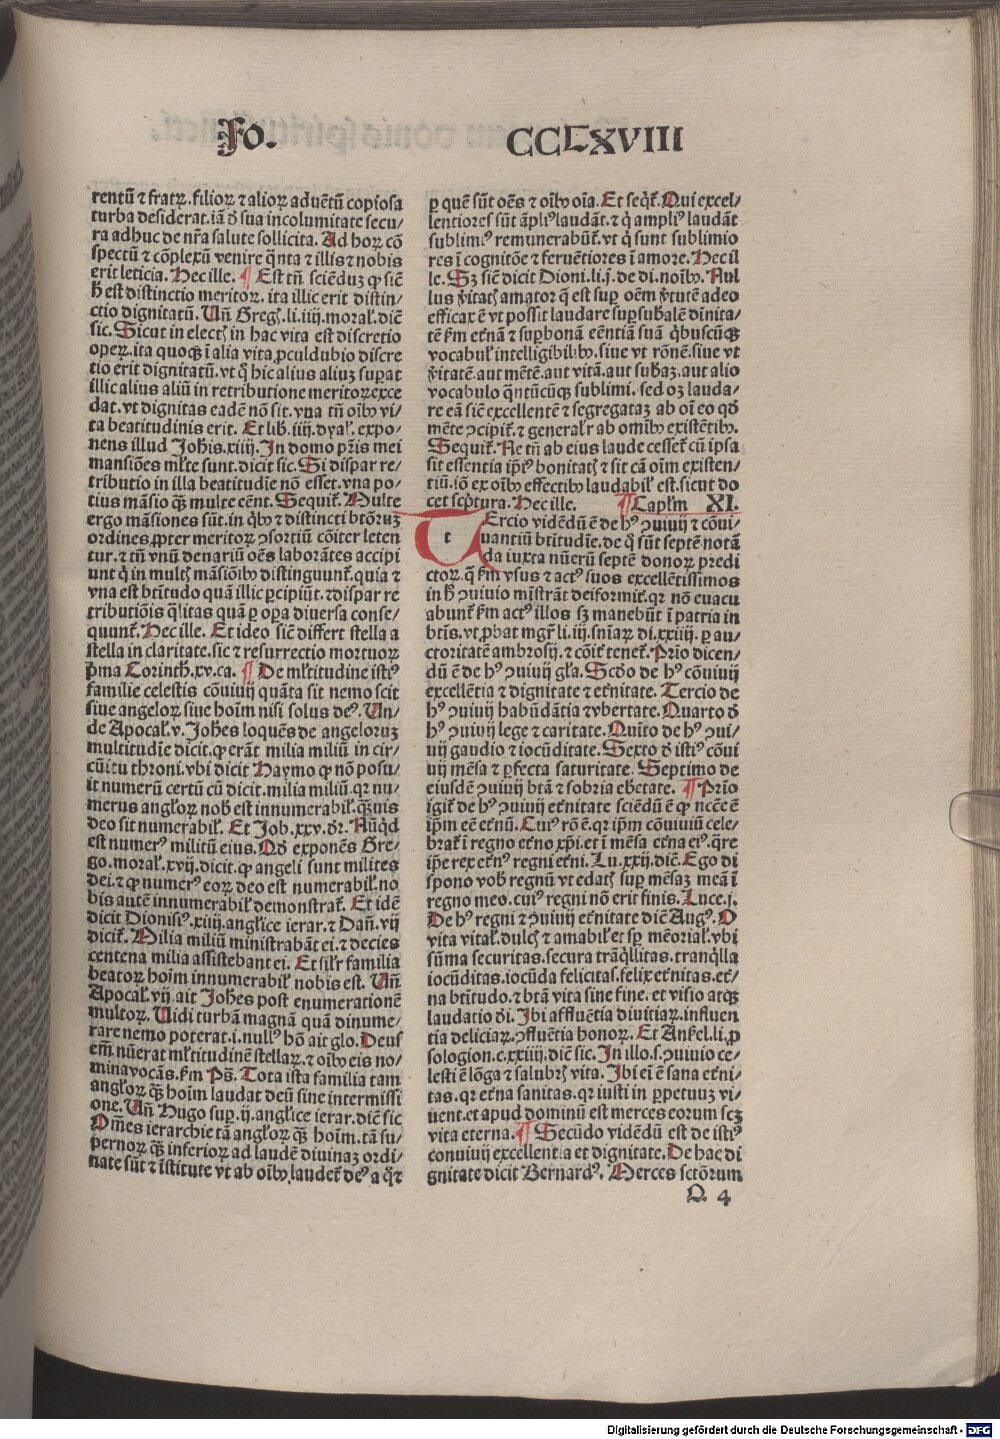 Fo. CCLXVIII
rentū ⁊ fratꝝ. filioꝝ ⁊ alioꝝ aduētū copiosa
turba desiderat. iā ꝺ̄ sua incolumitate secu⸗
ra adhuc de nr̄a salute sollicita. Ad hoꝝ cō
spectū ⁊ cōplexū venire q̄nta ⁊ illis ⁊ nobis
erit leticia. Hec ille. ¶ Est tn̄ sciēduꝫ ꝙ sic̄
h̄ est distinctio meritoꝝ. ita illic erit distin⸗
ctio dignitatū. Un̄ Greg. li. iiij. moral. dic̄
sic. Sicut in electꝭ in hac vita est discretio
opeꝝ. ita quoqꝫ ī alia vita ꝓculdubio discre
tio erit dignitatū. vt q̄ hic alius aliuꝫ suꝑat
illic alius aliū in retributione meritoꝝ exce
dat. vt dignitas eadē nō sit. vna tn̄ oīb⁹ vi⸗
ta beatitudinis erit. Et lib. iiij. dyal. expo⸗
nens illud Joh̄is. xiiij. In domo pr̄is mei
mansiōes ml̄te sunt. dicit sic. Si dispar re⸗
tributio in illa beatitudīe nō esset. vna po⸗
tius māsio qꝫ multe eēnt. Sequit̄. Multe
ergo māsiones sūt. in qͥb⁹ ⁊ distincti btōruꝫ
ordines. ꝓpter meritoꝝ ꝯsortiū cōiter leten
tur. ⁊ tn̄ vnū denariū oēs laborātes accipi
unt qͥ in multꝭ māsiōib⁹ distinguunt̄. quia ⁊
vna est btītudo quā illic ꝑcipiūt. ⁊ dispar re
tributiōis q̄litas quā ꝑ oꝑa diuersa conse⸗
quunt̄. Hec ille. Et ideo sic̄ differt stella a
stella in claritate. sic ⁊ resurrectio mortuoꝝ
p̄ma Corinth. xv. ca. ¶ De ml̄titudine isti⁹
familie celestis cōuiuij quāta sit nemo scit
siue angeloꝝ siue hoīm nisi solus de⁹. Un⸗
de Apocal. v. Joh̄es loquēs de angeloruꝫ
multitudīe dicit. ꝙ erāt milia miliū in cir⸗
cūitu throni. vbi dicit Haymo ꝙ nō posu⸗
it numerū certū cū dicit. milia miliū. qꝛ nu⸗
merus angloꝝ nob̄ est innumerabil. qꝫuis
deo sit numerabil. Et Job. xxv. dr̄. Nūqͥd
est numer⁹ militū eius. Qd̄ exponēs Gre⸗
go. moral. xvij. dicit. ꝙ angeli sunt milites
dei. ⁊ ꝙ numer⁹ eoꝝ deo est numerabil. no
bis autē innumerabil demonstrat̄. Et idē
dicit Dionisi⁹. xiiij. anglice ierar. ⁊ Dan̄. vij
dicit̄. Milia miliū ministrabāt ei. ⁊ decies
centena milia assistebant ei. Et silr̄ familia
beatoꝝ hoīm innumerabil nobis est. Un̄
Apocal. vij. ait Joh̄es post enumerationē
multoꝝ. Uidi turbā magnā quā dinume⸗
rare nemo poterat. i. null⁹ hō ait glo. Deus
em̄ nūerat ml̄titudinē stellaꝝ. ⁊ oīb⁹ eis no⸗
mina vocās. fm̄ Ps̄. Tota ista familia tam
angloꝝ qꝫ hoīm laudat deū sine intermissi
one. Un̄ Hugo suꝑ. ij. anglice ierar. dic̄ sic
Om̄es ierarchie tā angloꝝ qꝫ hoīm. tā su⸗
pernoꝝ qꝫ inferioꝝ ad laudē diuinaꝫ ordi⸗
nate sūt ⁊ īstitute vt ab oīb⁹ laudet̄ de⁹ a qͦ ⁊
ꝑ quē sūt oēs ⁊ oīb⁹ oīa. Et seqt̄. Qui excel⸗
lentiores sūt āpli⁹ laudāt. ⁊ qͥ ampli⁹ laudāt
sublimi⁹ remunerabūt̄. vt qͥ sunt sublimio
res ī cognitōe ⁊ feruētiores ī amore. Hec il
le. Sꝫ sic̄ dicit Dioni. li. j. de di. noīb⁹. Nul
lus v̄itatꝭ amator qͥ est suꝑ oēm v̄tutē adeo
efficax ē vt possit laudare suꝑ subalē dīnita⸗
tē fm̄ et̄nā ⁊ suꝑbonā eēntiā suā qͥbuscūqꝫ
vocabul intelligibilib⁹. siue vt rōnē. siue vt
v̄itatē. aut mētē. aut vitā. aut subaꝫ. aut alio
vocabulo qͣntūcūqꝫ sublimi. sed oꝫ lauda⸗
re eā sic̄ excellentē ⁊ segregataꝫ ab oī eo qd̄
mēte ꝯcipit̄. ⁊ generalr̄ ab omīb⁹ existētib⁹.
Sequit̄. Ne tn̄ ab eius laude cesset̄ cū ipsa
sit essentia ip̄i⁹ bonitatꝭ ⁊ sit cā oīm existen⸗
tiū. iō ex oīb⁹ effectib⁹ laudabil est. sicut do
cet scp̄tura. Hec ille. ¶ Caplm̄ XI.
t Ercio vidēdū ē de h⁹ ꝯuiuij ⁊ cōui⸗
uantiū btitudīe. de qͣ sūt septē notā
da iuxta nūerū septē donoꝝ predi
ctoꝝ. q̄ fm̄ vsus ⁊ act⁹ suos excellētissimos
in h̄ ꝯuiuio mīstrāt deiformit̄. qꝛ nō euacu
abunt̄ fm̄ act⁹ illos sꝫ manebūt ī patria in
btīs. vt ꝓbat mgr̄ li. iij. snīaꝝ di. xxiiij. ꝑ au⸗
ctoritatē ambrosij. ⁊ cōit̄ tenet̄. Prīo dicen⸗
dū ē de h⁹ ꝯuiuij gl̄a. Scd̄o de h⁹ cōuiuij
excellētia ⁊ dignitate ⁊ et̄nitate. Tercio de
h⁹ ꝯuiuij habūdātia ⁊ vbertate. Quarto ꝺ̄
h⁹ ꝯuiuij lege ⁊ caritate. Quīto de h⁹ ꝯui⸗
uij gaudio ⁊ iocūditate. Sexto ꝺ̄ isti⁹ cōui
uij mēsa ⁊ ꝑfecta saturitate. Septimo de
eiusdē ꝯuiuij btā ⁊ sobria ebetate. ¶ Prīo
igit̄ de h⁹ ꝯuiuij et̄nitate sciēdū ē ꝙ ncēē ē
ip̄m eē et̄nū. Cui⁹ rō ē. qꝛ ip̄m cōuiuiū cele⸗
brat̄ ī regno et̄no xp̄i. et ī mēsa et̄na ei⁹. q̄re
ip̄e rex et̄n⁹ regni et̄ni. Lu. xxij. dic̄. Ego di
spono vob̄ regnū vt edatꝭ suꝑ mēsaꝫ meā ī
regno meo. cui⁹ regni nō erit finis. Luce. j.
De h⁹ regni ⁊ ꝯuiuij et̄nitate dic̄ Aug⁹. O
vita vital. dulcꝭ ⁊ amabil et sp̄ mēorial. vbi
sūma securitas. secura trāqͥllitas. tranqͥlla
iocūditas. iocūda felicitas. felix et̄nitas. et̄⸗
na btītudo. ⁊ btā vita sine fine. et visio atqꝫ
laudatio dī. Ibi affluētia diuitiaꝝ. influen
tia deliciaꝝ. ꝯfluētia honoꝝ. Et Anshel. li. ꝓ
sologion. c. xxiiij. dic̄ sic. In illo. s. ꝯuiuio ce⸗
lesti ē lōga ⁊ salubrꝭ vita. Ibi ei̅ ē sana et̄ni⸗
tas. qꝛ et̄na sanitas. qꝛ iusti in ꝑpetuuꝫ vi⸗
uent. et apud dominū est merces eorum scꝫ
vita eterna. ¶ Secūdo vidēdū est de isti⁹
conuiuij excellentia et dignitate. De hac di
gnitate dicit Bernard⁹. Merces sctōrum
Q 4
Digitalisierung gefördert durch die Deutsche Forschungsgemeinschaft - DFG